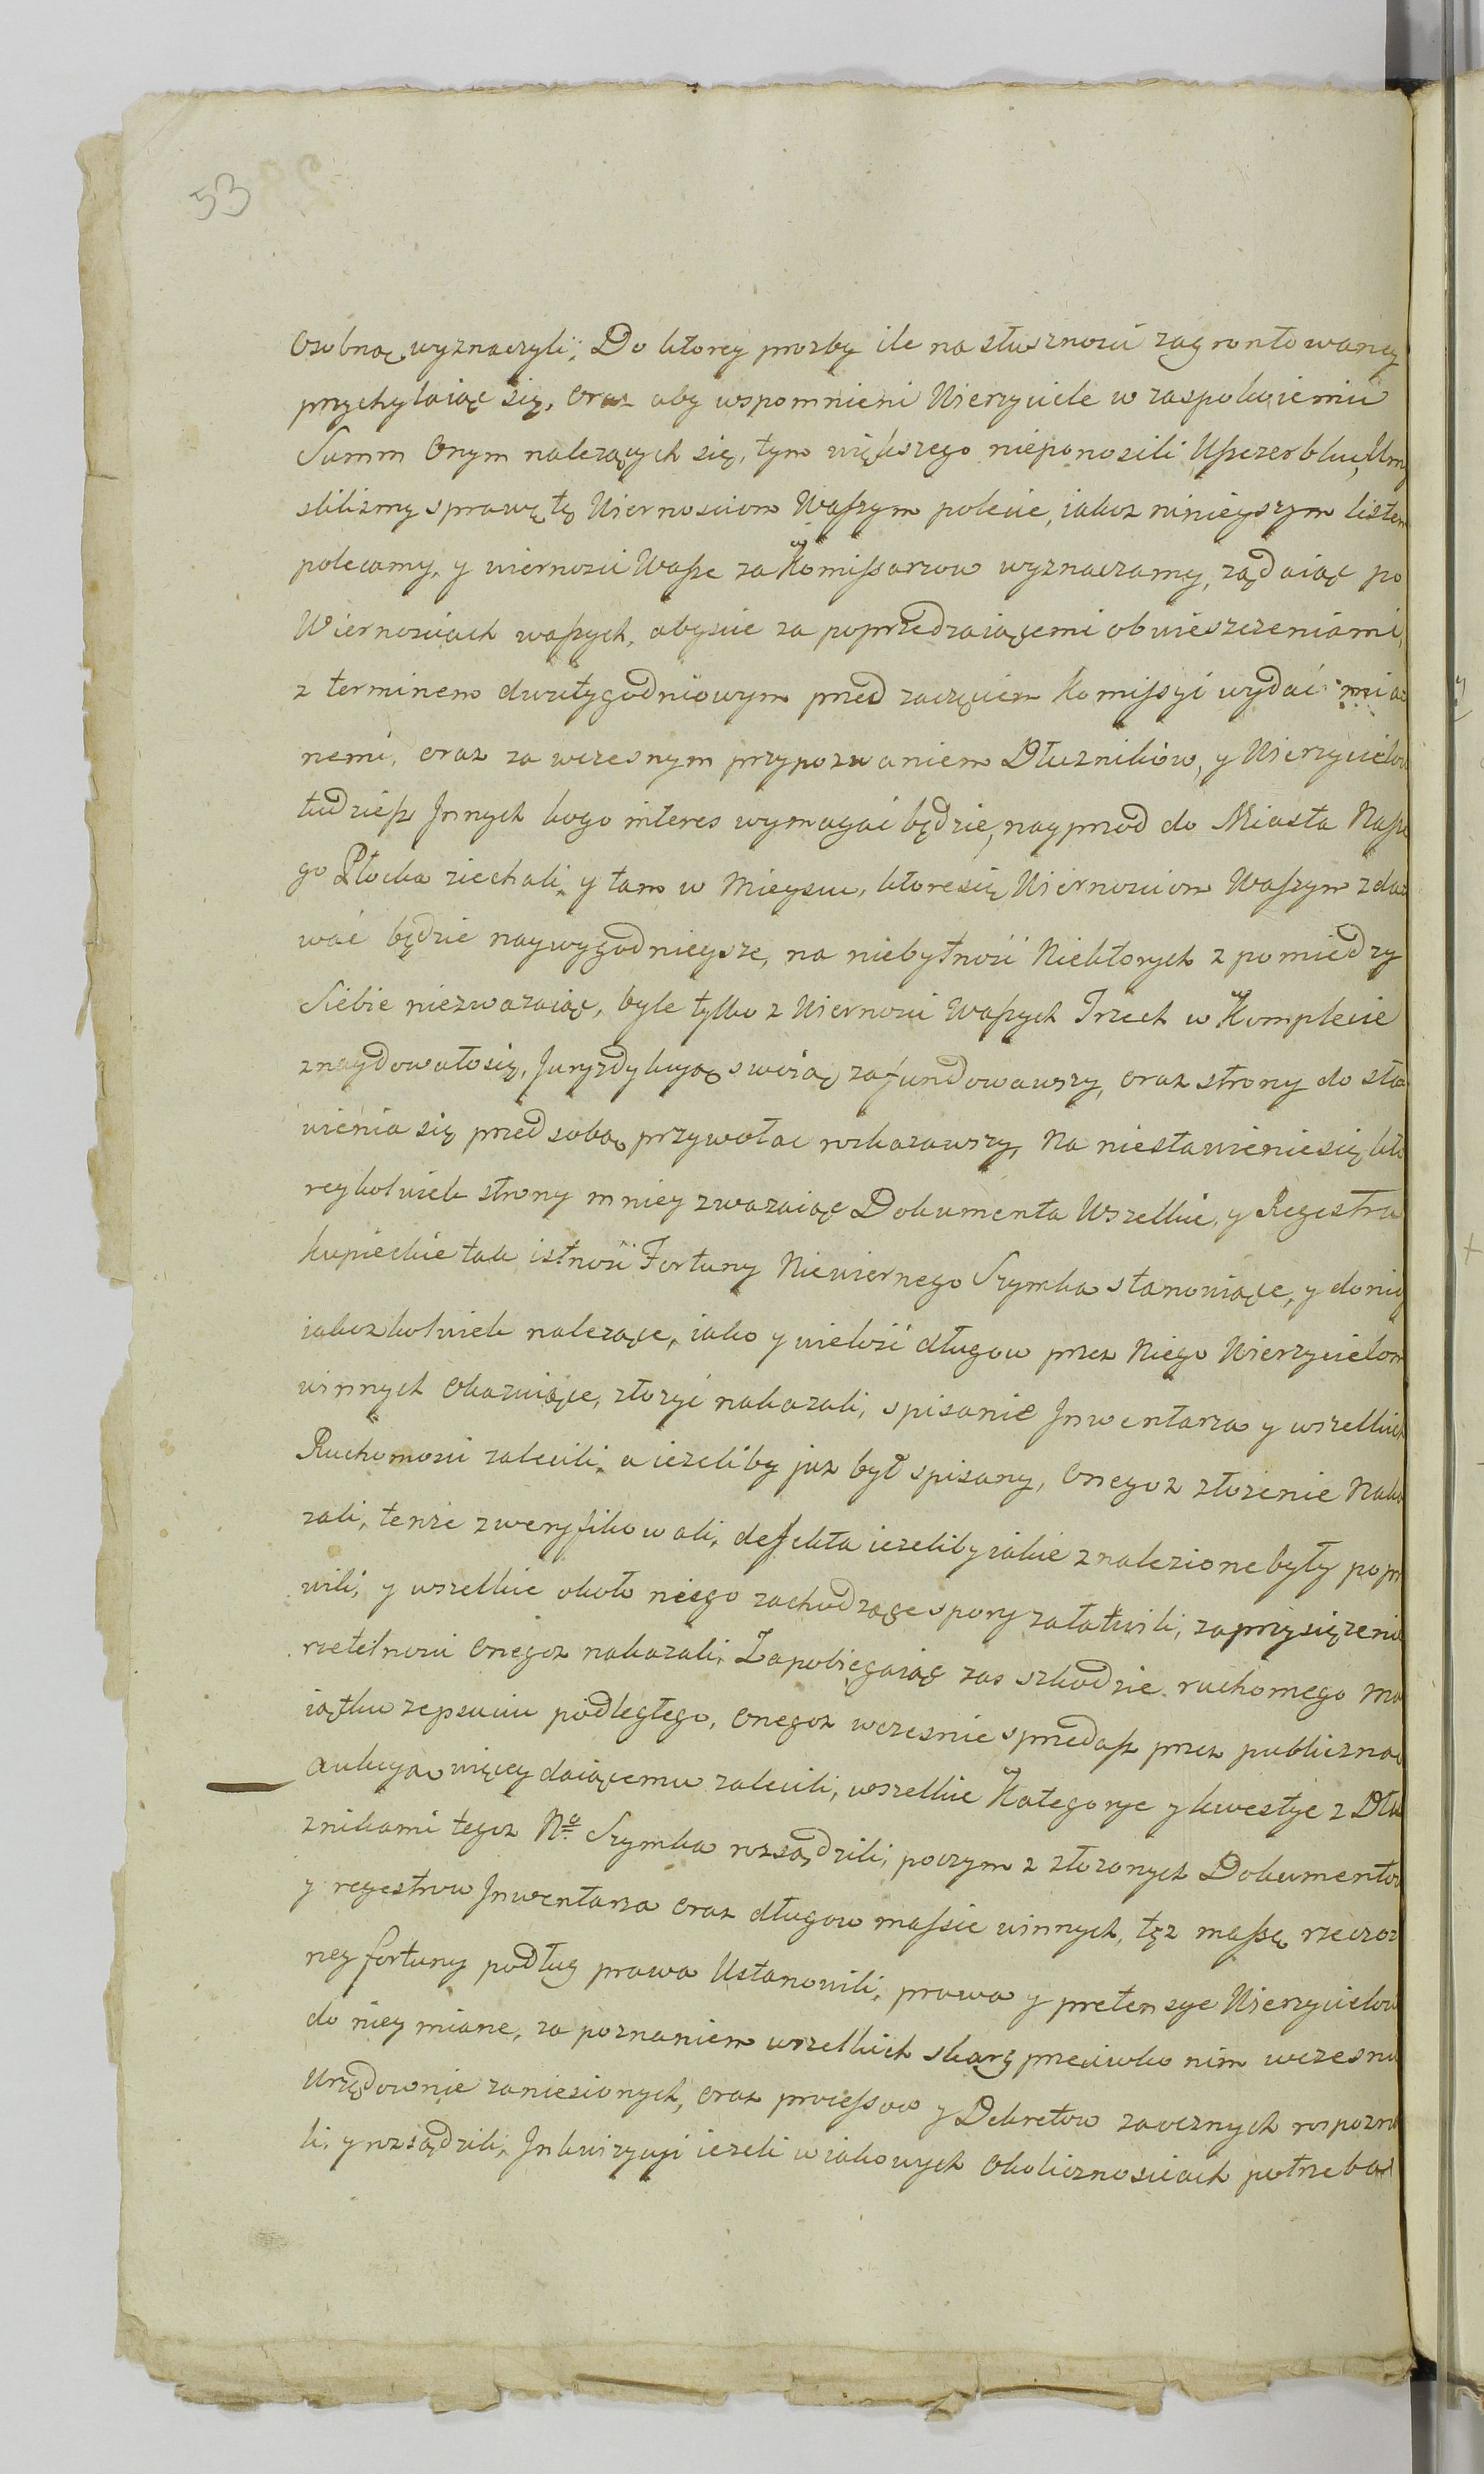 53
osobną wyznaczyli; Do ktorey prozby ile na słusznosci zagrontowaney
przychylaiąc się, oraz aby wspomnieni Wierzyciele w zaspokoieniu
Summ Onym należących się, tym większego nieponosili Uszczerbku, Umy
slilismy sprawę tę Wiernosciom Waszym polecic, iakoz ninieyszym listem
polecamy, y wiernosci Wasze za Komissarzow wyznaczamy, żądaiąc po
Wiernosciach waszych, abyscie za poprzedzaiącemi obwieszczeniami,
z terminem dwutygodniowym przed zaczęciem Kommissyi wydać się mia
nemi, oraz za wczesnym przypozwaniem Dłuznikow, y Wierzycielow
tudziesz Innych kogo interes wymagać będzie, nayprzod do Miasta Nasze
go Płocka ziechali, y tam w Mieyscu, ktore się Wiernosciom Waszym zda
wać będzie naywygodnieysze, na niebytność Niektorych z pomiedzy
Siebie niezwazaiąc, byle tylko z Wiernosci Waszych Trzech w Komplecie
znaydowało się, Juryzdykcyą swoią zafundowawszy, oraz strony do sta
wienia się przed sobą przywołac rozkazawszy, na niestawienie się kto
reykolwiek strony mniey zwazaiąc Dokumenta Wszelkie, y Regestra
kupieckie tak istność Fortuny Niewiernego Szymka stanowiące, y do niey
iakozkolwiek nalezące, iako y wielość długow przez Niego Wierzycielom
winnych Okazuiące, złozyć nakazali, spisanie Inwentarza y wszelkich
Ruchomosci zalecili, a iezeliby juz był spisany, Onegoz złożenie Naka
zali, tenze zweryfikowali, defekta iezeliby iakie znalezione były popra
wili, y wszelkie około niego zachodzące spory załatwili, zaprzysiężenie
rzetelnosci onegoz nakazali. Zapobiegaiąc zas szkodzie ruchomego Ma
iątku zepsuciu podległego, onegoz wczesnie sprzedasz przez publiczną
aukcyą więcey daiącemu zalecili, wszelkie Kategorye y kwestye z Dłu
znikami tegoz No Szymka rozsądzili, poczym z złozonych Dokumentow
y regestrow Inwentarza oraz długow massie winnych, tęz massę rzeczo
ney fortuny podług prawa Ustanowili, prawa y pretensye Wierzycielow
do niey miane, za poznaniem wszelkich skarg przeciwko nim wczesnie
Urzędownie zaniesionych, oraz processow y Dekretow zaocznych rospozna
li, y rozsądzili, Inkwizycyi iezeli w iakowych Okolicznosciach potrzeba